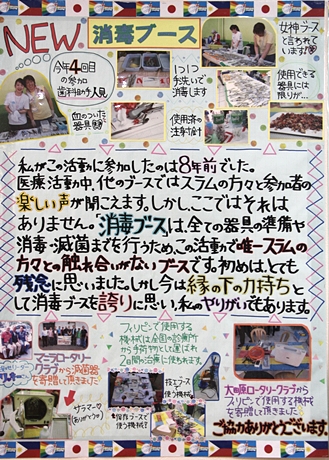 NEW
消毒ブース
女神ブース
と言われて
います!
今年4回目
の参加
歯科助手人見
1つ1つ
手洗いで
消毒します
使用できる
器具には
限りが…
血のついた
器具
使用済の
注射針
私がこの活動に参加したのは8年前でした。
医療活動中、他のブースではスラムの方々と参加者の
楽しい声が聞こえます。しかし、ここではそれは
ありません。「消毒ブース」は、全ての器具の準備や
消毒・滅菌までを行うため、この活動で唯一スラムの
方々との触れ合いがないブースです。初めは、とても
残念に思いました。しかし今は縁の下の力持ちと
して消毒ブースを誇りに思い、私のやりがいでもあります。
フィリピンで使用する
機械は全国の診療所
から手荷物として運ばれ
2日間の治療に使われます。
マニラロータリー
クラブから滅菌器
を寄贈して頂きました
技工ブースで
使う機械
大田原ロータリークラブから
フィリピンで使用する機械
を寄贈して頂きました
サラマーポ
(ありがとう)
保存ブースで
使う機械
ご協力ありがとうございます。